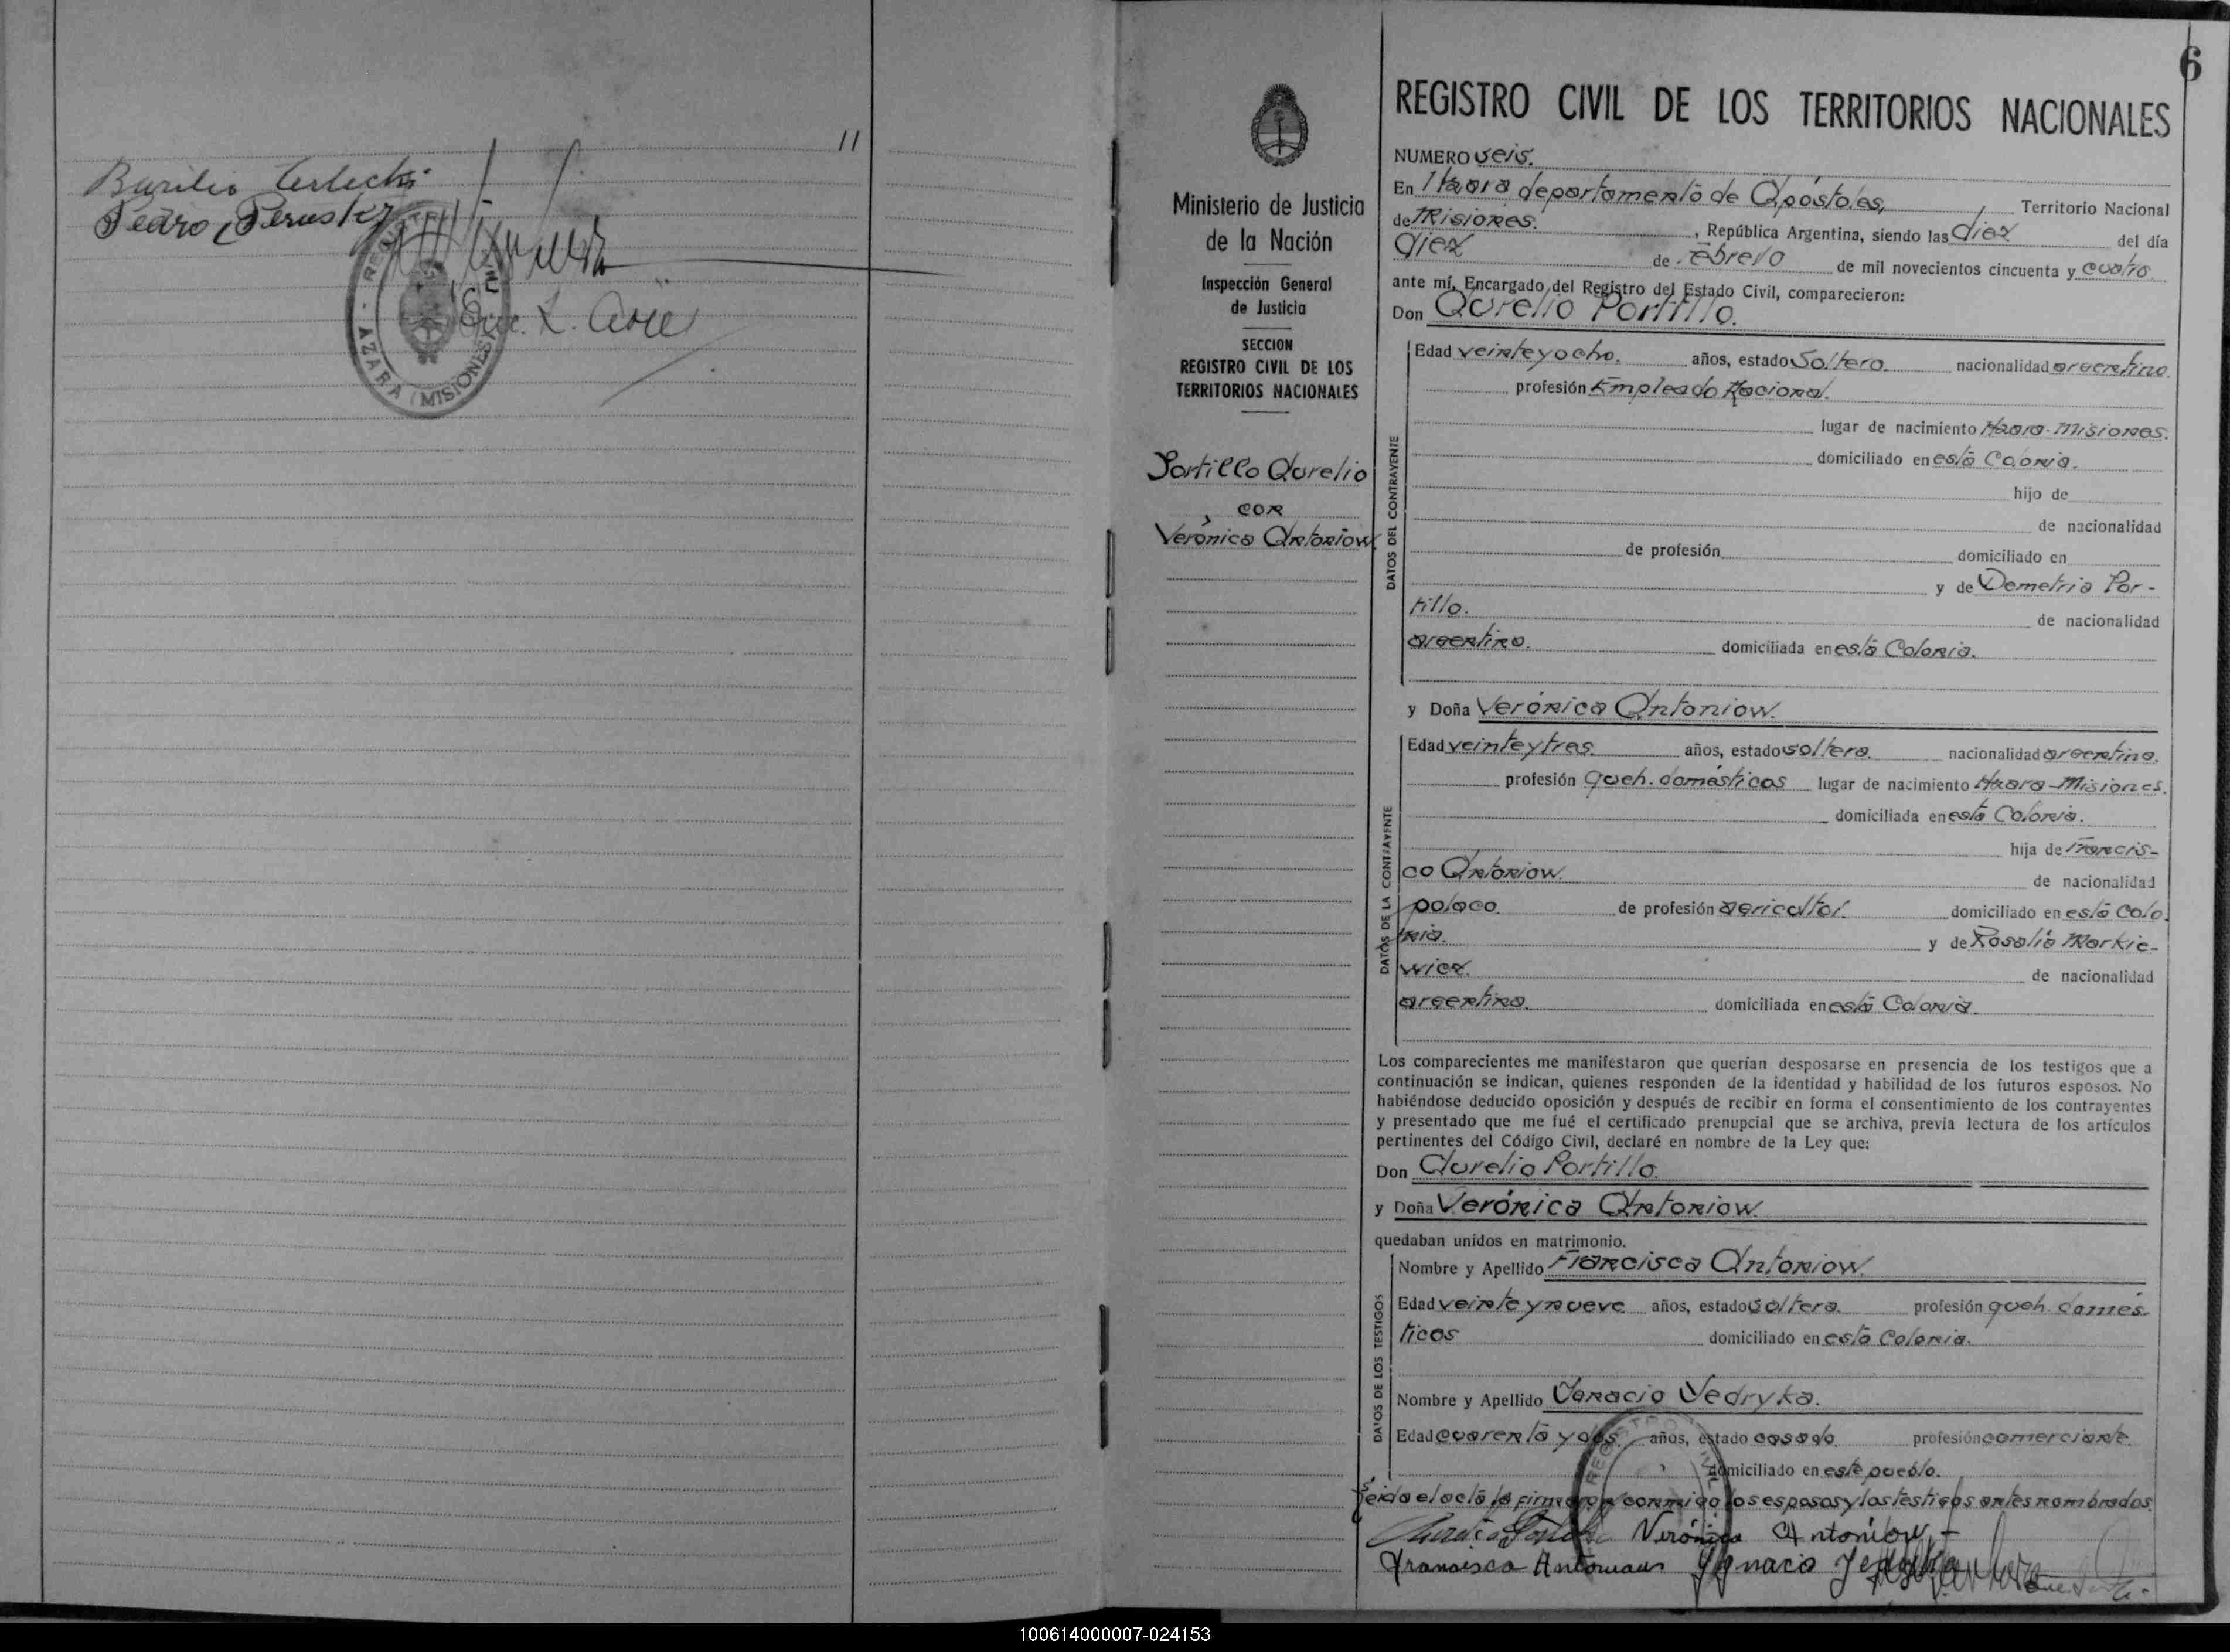 11
Basilio Terlecki
Pedro Peruski
REGISTRO
AZARA (MISIONES)
6
REGISTRO CIVIL DE LOS TERRITORIOS NACIONALES
Ministerio de Justicia
de la Nación
Inspección General
de Justicia
SECCION
REGISTRO CIVIL DE LOS
TERRITORIOS NACIONALES
Portillo Aurelio
con
Verónica Antoniow
NUMERO seis.
En Azara departamento de Apóstoles, Territorio Nacional
de Misiones. , República Argentina, siendo las diez del día
diez de Febrero de mil novecientos cincuenta y cuatro
ante mí, Encargado del Registro del Estado Civil, comparecieron:
Don Aurelio Portillo.
DATOS DEL CONTRAYENTE
Edad veinteyocho. años, estado Soltero. nacionalidad argentino.
profesión Empleado Nacional.
lugar de nacimiento Azara-Misiones.
domiciliado en está Colonia.
hijo de
de nacionalidad
de profesión domiciliado en
y de Demetria Por-
tillo.
de nacionalidad
argentina. domiciliada en está Colonia.
y Doña Verónica Antoniow.
DATOS DE LA CONTRAYENTE
Edad veinteytres. años, estado soltera. nacionalidad argentina.
profesión queh. domésticos lugar de nacimiento Azara-Misiones.
domiciliada en está Colonia.
hija de Francis-
co Antoniow.
de nacionalidad
polaco. de profesión agricultor. domiciliado en está Colo-
nia. y de Rosalía Markie-
wicz.
de nacionalidad
argentina. domiciliada en está Colonia.
Los comparecientes me manifestaron que querían desposarse en presencia de los testigos que a
continuación se indican, quienes responden de la identidad y habilidad de los futuros esposos. No
habiéndose deducido oposición y después de recibir en forma el consentimiento de los contrayentes
y presentado que me fué el certificado prenupcial que se archiva, previa lectura de los artículos
pertinentes del Código Civil, declaré en nombre de la Ley que:
Don Aurelio Portillo.
y Doña Verónica Antoniow.
quedaban unidos en matrimonio.
DATOS DE LOS TESTIGOS
Nombre y Apellido Francisca Antoniow.
Edad veinteynueve años, estado soltera. profesión queh. domés-
ticos domiciliado en está Colonia.
Nombre y Apellido Ignacio Jedryka.
Edad cuarenta y dos. años, estado casado. profesión comerciante.
domiciliado en esté pueblo.
Leída el actá la firmaron conmigo los esposos y los testigos antes nombrados.
Aurelio Portillo Verónica Antoniow
Francisca Antoniow Ignacio Jedryka
100614000007-024153